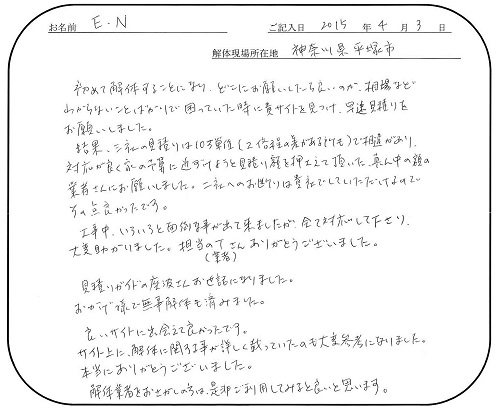 お名前 E.N ご記入日 2015 年 4 月 3 日
解体現場所在地 神奈川県平塚市
初めて解体することになり、どこにお願いしたら良いのか、相場など
わからないことばかりで困っていた時に貴サイトを見つけ、早速見積りを
お願いしました。
結果、三社の見積りは10万単位(2倍程の差がある所も)で相違があり、
対応が良く家の予算に近づけようと見積り額を押えて頂いた、真ん中の額の
業者さんにお願いしました。二社へのお断りは貴社でしていただけるので
その点良かったです。
工事中、いろいろと面倒な事が出て来ましたが、全て対応して下さり、
大変助かりました。担当のTさんありがとうございました。
(業者)
見積りガイドの座波さんお世話になりました。
おかげ様で無事解体も済みました。
良いサイトに出会えて良かったです。
サイト上に、解体に関る事が詳しく載っていたのも大変参考になりました。
本当にありがとうございました。
解体業者をおさがしの方は、是非ご利用してみると良いと思います。